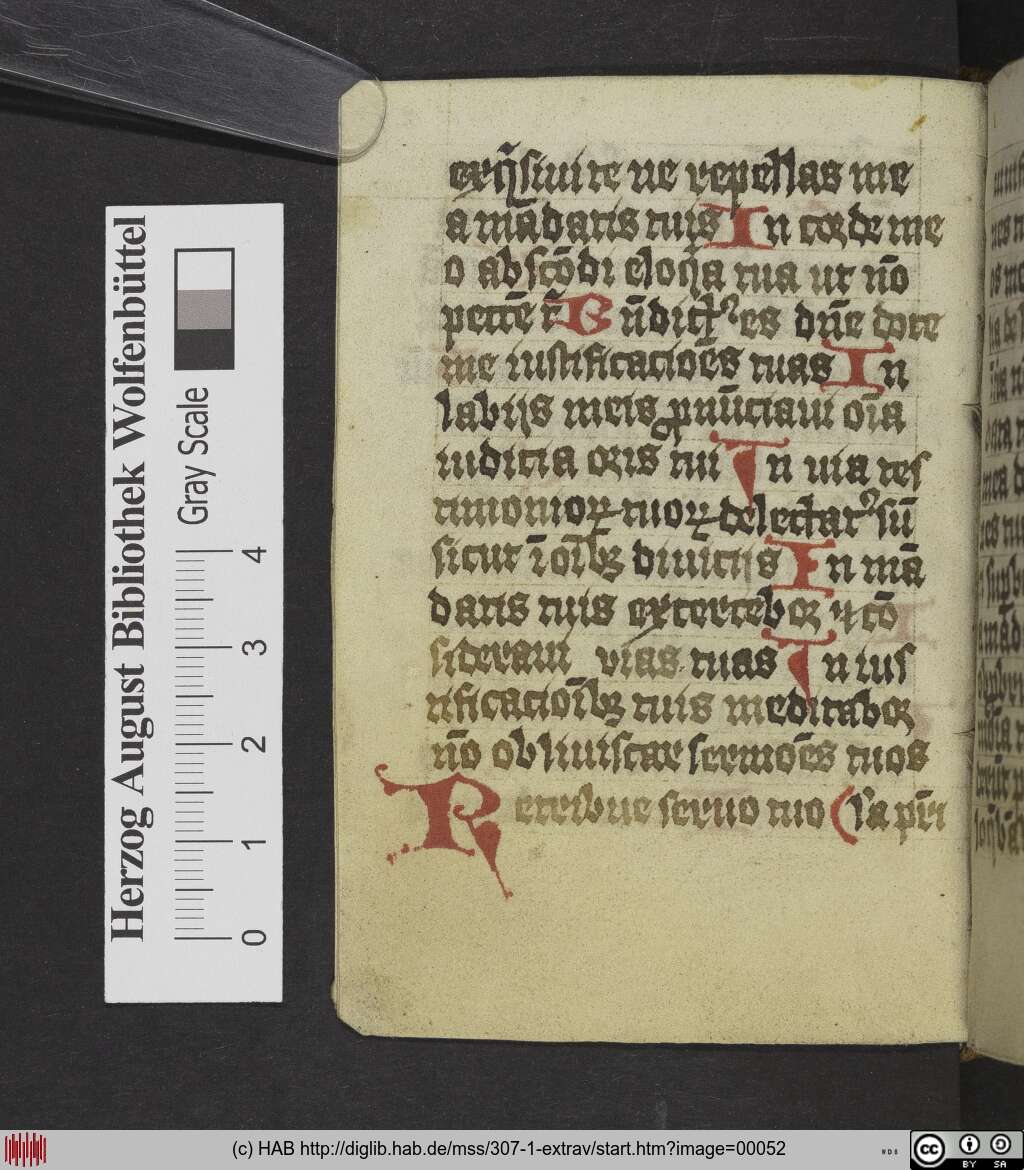 exq̃siui te ne repellas me
a mādatis tuis In corde me
o abscōdi eloq̄a tua ut nō
peccē t̄ Bn̄dictꝰ es dn̄e doce
me iustificacioēs tuas In
labijs meis ꝓnūciaui oīa
iudicia oris tui In uia tes
timonioꝝ tuoꝝ delectatꝰ sū
sicut ī oībꝫ diuicijs In mā
datis tuis exercebor ⁊ cō
siderabo vias tuas In ius
tificacioībꝫ tuis meditabor
nō obliuiscar sermōes tuos
Retribue seruo tuo
Herzog August Bibliothek Wolfenbüttel
Gray Scale
0 1 2 3 4
(c) HAB http://diglib.hab.de/mss/307-1-extrav/start.htm?image=00052
cc BY SA